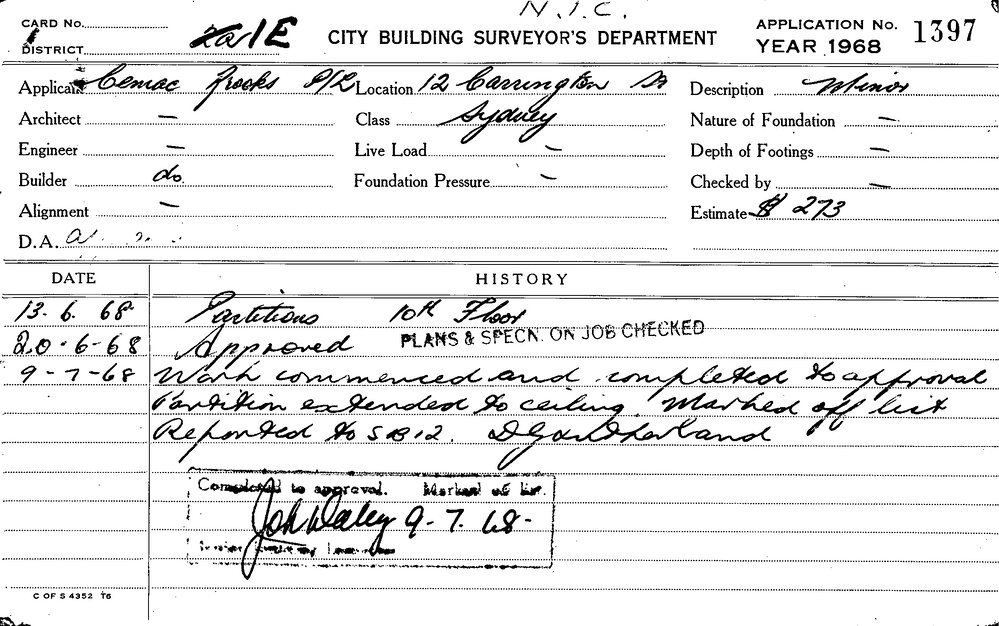 N.I.C.
CARD No.
1E
CITY BUILDING SURVEYOR'S DEPARTMENT
APPLICATION No. 1397
DISTRICT
YEAR 1968
Applicant Cemac Brooks P/L Location 12 Carrington St Description Minor
Architect — Class Sydney Nature of Foundation —
Engineer — Live Load — Depth of Footings —
Builder do. Foundation Pressure — Checked by —
Alignment — Estimate $ 273
D.A.
DATE HISTORY
13. 6. 68 Partitions 10th Floor
PLANS & SPECN. ON JOB CHECKED
20-6-68 Approved
9-7-68 Work commenced and completed to approval
Partition extended to ceiling. Marked off list
Reported to S B 12.
Completed to approval. Marked off list.
9-7.68-
C OF S 4352 T6